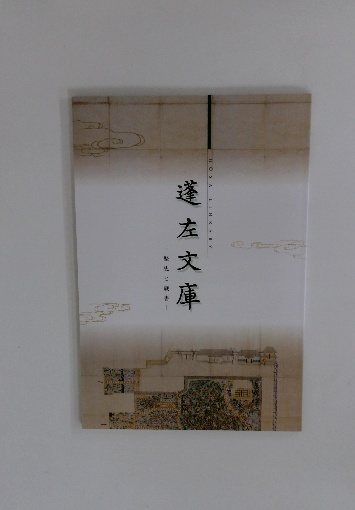 HŌSA LIBRARY
蓬左文庫
－歴史と蔵書－